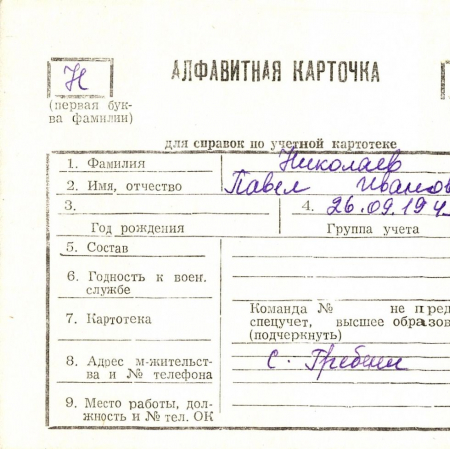 Н
АЛФАВИТНАЯ КАРТОЧКА
(первая бук-
ва фамилии)
для справок по учетной картотеке
1. Фамилия Николаев
2. Имя, отчество Павел Иванов
3. 4. 26.09.194
Год рождения Группа учета
5. Состав
6. Годность к воен.
службе
7. Картотека
Команда № не пред
спецучет, высшее образов
(подчеркнуть)
8. Адрес м-жительст-
ва и № телефона
с. Гребени
9. Место работы, дол-
жность и № тел. ОК